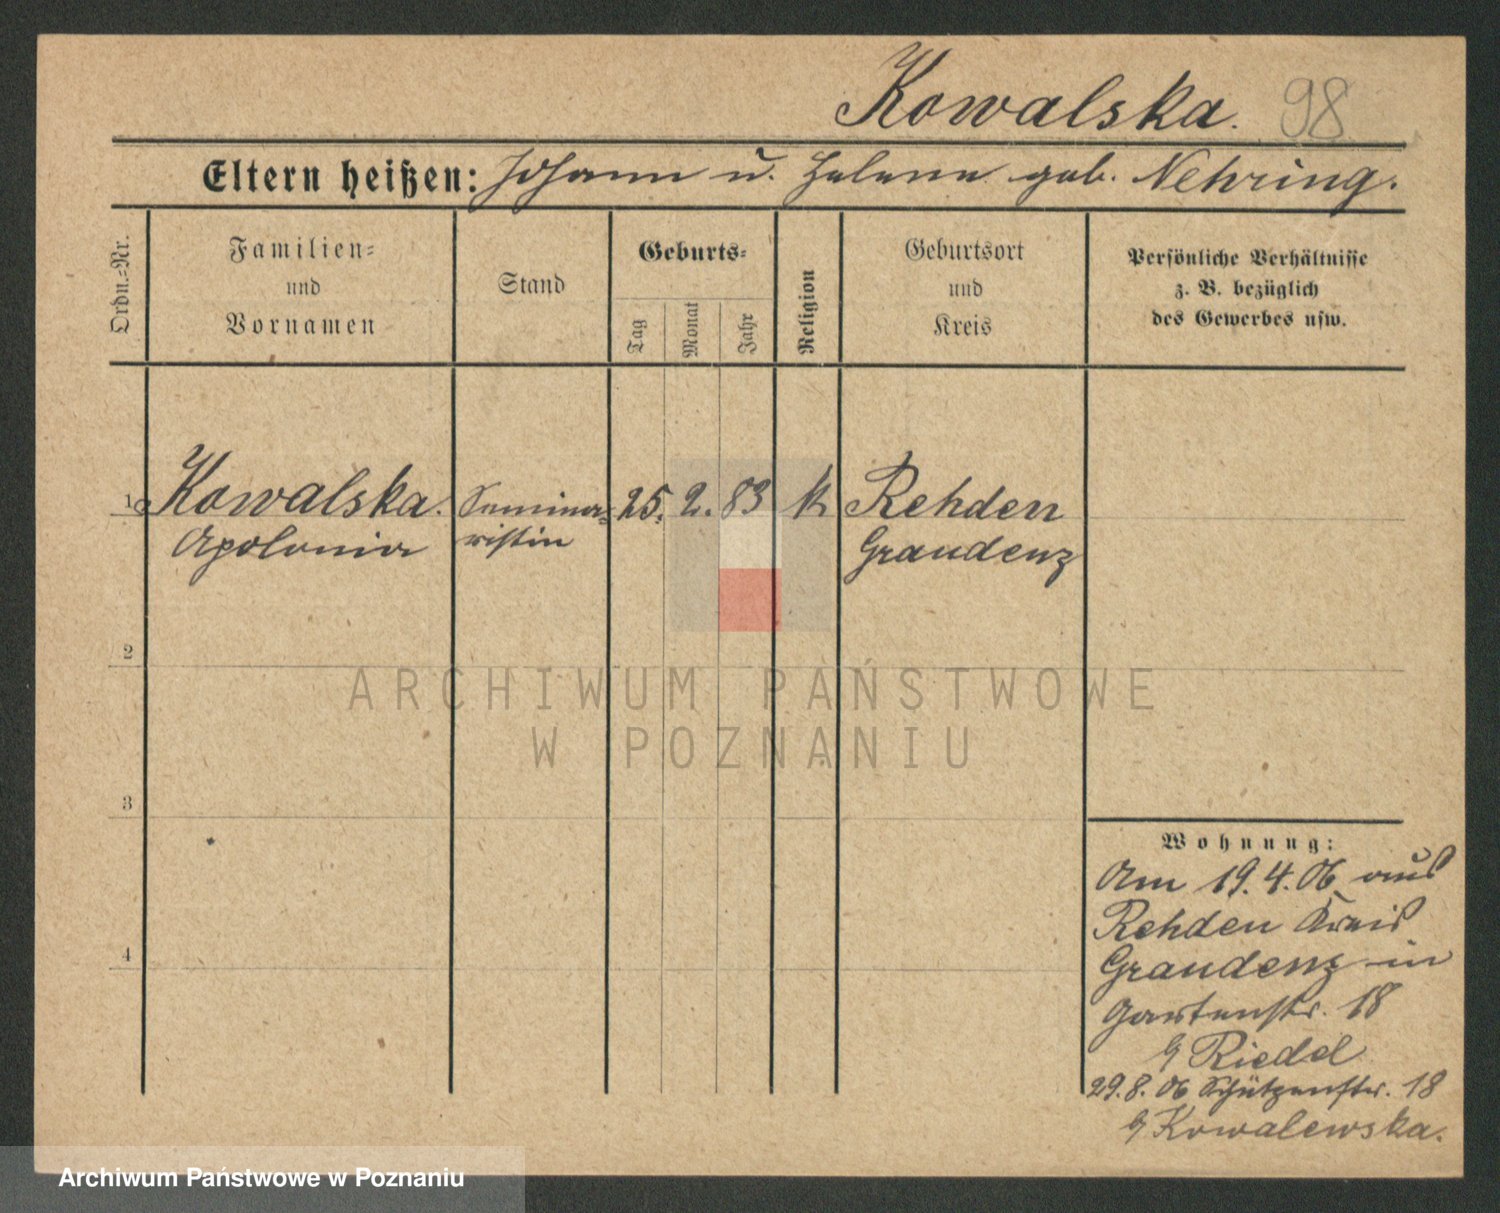 Kowalska. 98
Eltern heißen: Johann u. Helene geb. Nehring.
Ordn.=Nr.
Familien=
und
Vornamen
Stand
Geburts=
Tag
Monat
Jahr
Religion
Geburtsort
und
Kreis
Persönliche Verhältnisse
z. B. bezüglich
des Gewerbes usw.
1 Kowalska. Semina= 25. 2. 83 k Rehden
Apolonia ristin Graudenz
2
3
4
ARCHIWUM PAŃSTWOWE
W POZNANIU
Wohnung:
Am 19. 4. 06 aus
Rehden Kreis
Graudenz in
Gartenstr. 18
Riedel
29. 8. 06 Schützenstr. 18
Kowalewska.
Archiwum Państwowe w Poznaniu